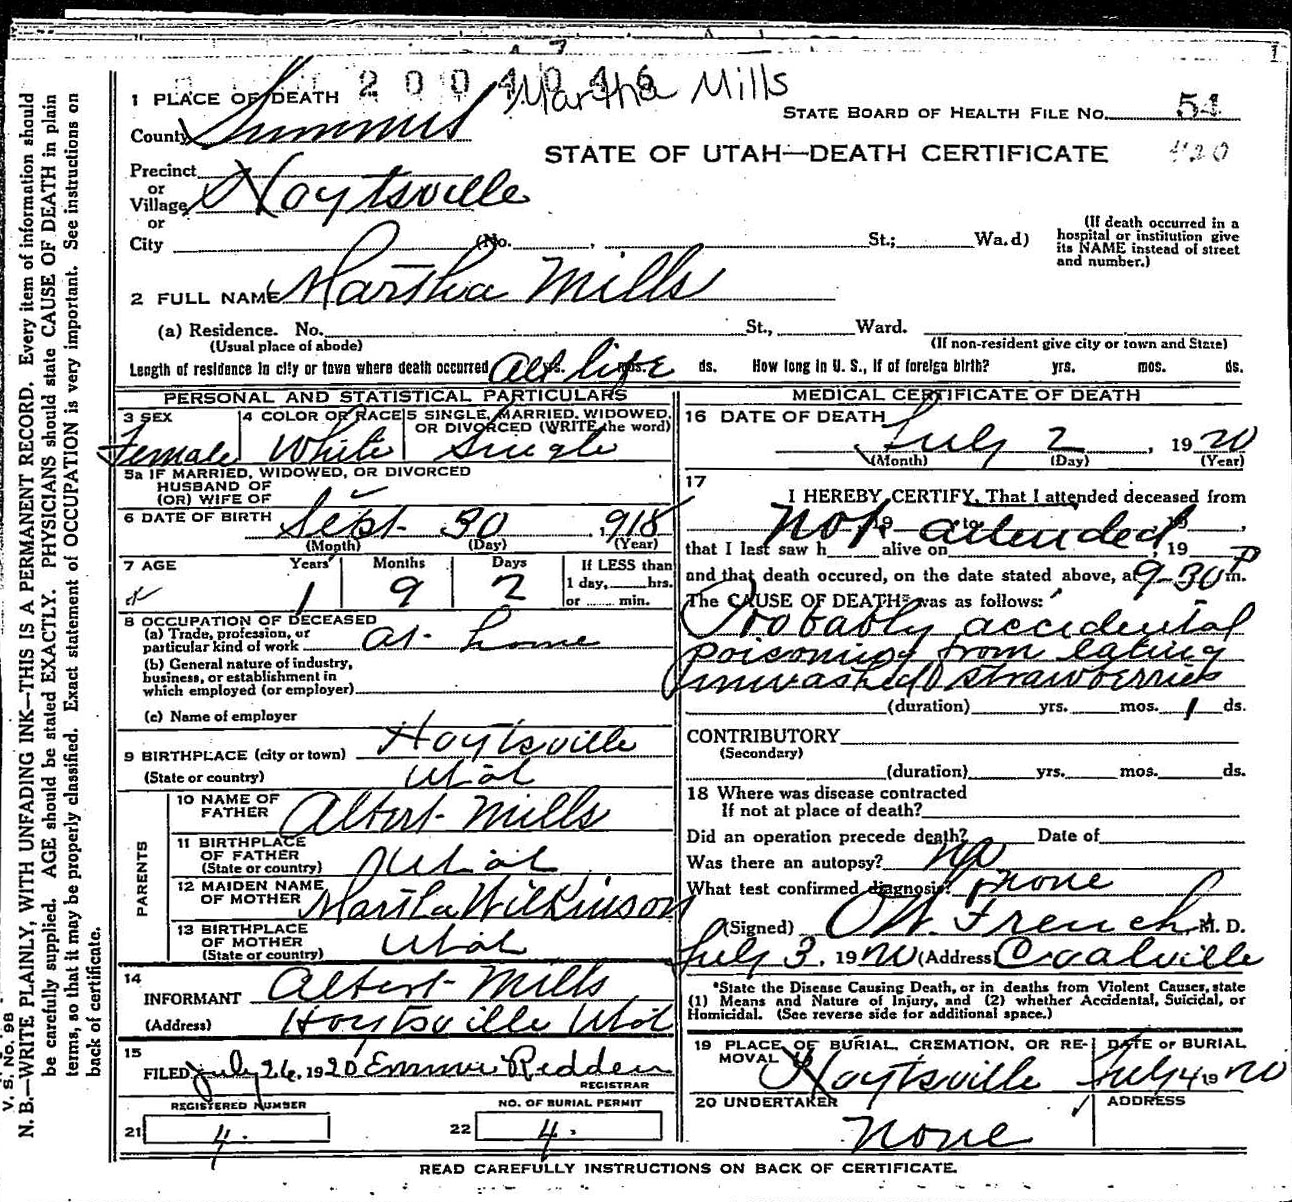 2004046
Martha Mills
1
1 PLACE OF DEATH
STATE BOARD OF HEALTH FILE No. 54
County Summit
STATE OF UTAH—DEATH CERTIFICATE
420
Precinct
or
Village Hoytsville
or
City (No. , St.; Wa.d)
(If death occurred in a
hospital or institution give
its NAME instead of street
and number.)
2 FULL NAME Martha Mills
(a) Residence. No. St., Ward.
(Usual place of abode) (If non-resident give city or town and State)
Length of residence in city or town where death occurred all life yrs. mos. ds. How long in U. S., if of foreign birth? yrs. mos. ds.
PERSONAL AND STATISTICAL PARTICULARS
3 SEX Female
4 COLOR OR RACE White
5 SINGLE, MARRIED, WIDOWED,
OR DIVORCED (WRITE the word)
Single
5a IF MARRIED, WIDOWED, OR DIVORCED
HUSBAND OF
(OR) WIFE OF
6 DATE OF BIRTH Sept. 30, 1918
(Month) (Day) (Year)
7 AGE Years Months Days If LESS than
1 day, hrs.
or min.
1 9 2
8 OCCUPATION OF DECEASED
(a) Trade, profession, or
particular kind of work at home
(b) General nature of industry,
business, or establishment in
which employed (or employer)
(c) Name of employer
9 BIRTHPLACE (city or town) Hoytsville
(State or country) Utah
PARENTS
10 NAME OF
FATHER Albert Mills
11 BIRTHPLACE
OF FATHER
(State or country) Utah
12 MAIDEN NAME
OF MOTHER Martha Wilkinson
13 BIRTHPLACE
OF MOTHER
(State or country) Utah
14
INFORMANT Albert Mills
(Address) Hoytsville Utah
15
FILED July 26, 1920 Emma Redden
REGISTRAR
REGISTERED NUMBER NO. OF BURIAL PERMIT
21 4. 22 4.
MEDICAL CERTIFICATE OF DEATH
16 DATE OF DEATH
July 2, 1920
(Month) (Day) (Year)
17
I HEREBY CERTIFY, That I attended deceased from
Not attended
19 to 19
that I last saw h alive on , 19
and that death occured, on the date stated above, at 9-30 P m.
The CAUSE OF DEATH* was as follows:
Probably accidental
poisoning from eating
unwashed strawberries
(duration) yrs. mos. 1 ds.
CONTRIBUTORY
(Secondary)
(duration) yrs. mos. ds.
18 Where was disease contracted
If not at place of death?
Did an operation precede death? Date of
Was there an autopsy? no
What test confirmed diagnosis? none
(Signed) O W. French, M. D.
July 3, 1920 (Address) Coalville
*State the Disease Causing Death, or in deaths from Violent Causes, state
(1) Means and Nature of Injury, and (2) whether Accidental, Suicidal, or
Homicidal. (See reverse side for additional space.)
19 PLACE OF BURIAL, CREMATION, OR RE-
MOVAL
Hoytsville
DATE OF BURIAL
July 4 1920
20 UNDERTAKER
none
ADDRESS
READ CAREFULLY INSTRUCTIONS ON BACK OF CERTIFICATE.
V. S. No. 98
N. B.—WRITE PLAINLY, WITH UNFADING INK—THIS IS A PERMANENT RECORD. Every item of information should
be carefully supplied. AGE should be stated EXACTLY. PHYSICIANS should state CAUSE OF DEATH in plain
terms, so that it may be properly classified. Exact statement of OCCUPATION is very important. See instructions on
back of certificate.